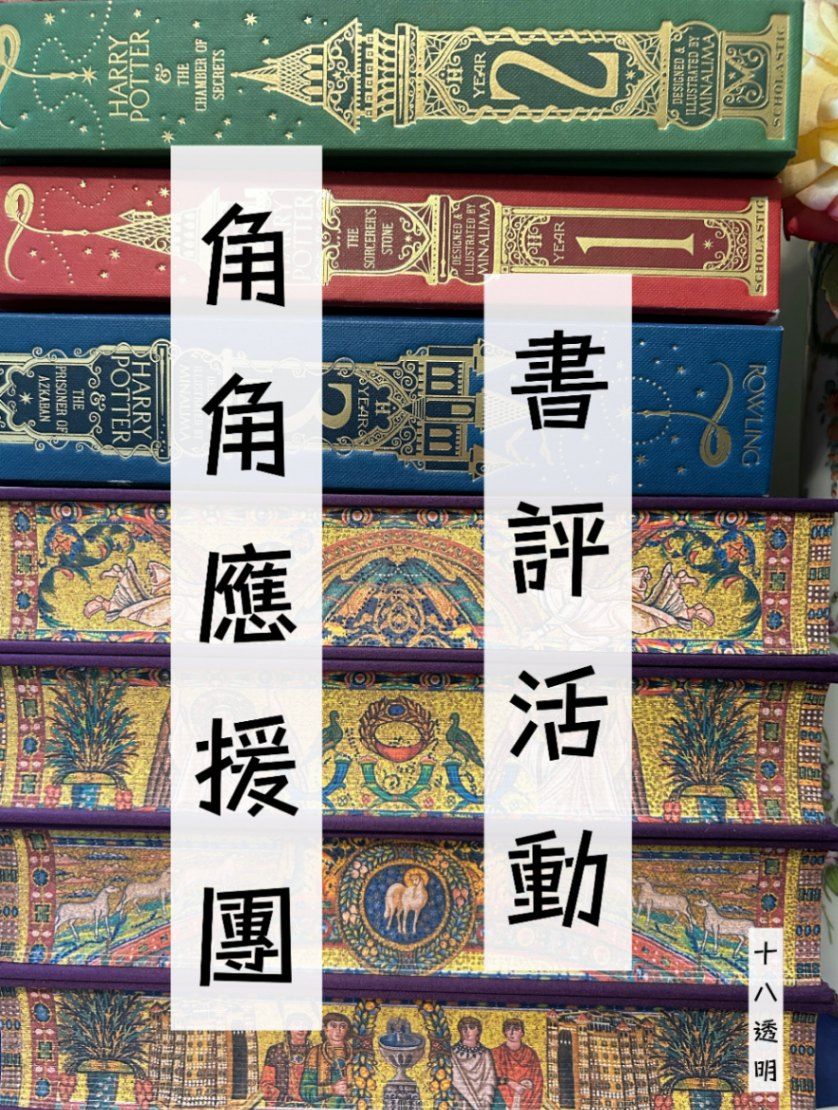 HARRY
POTTER
&
THE
CHAMBER OF
SECRETS
YEAR
2
DESIGNED &
ILLUSTRATED BY
MINALIMA
M
SCHOLASTIC
HARRY
POTTER
THE
SORCERER'S
STONE
DESIGNED &
ILLUSTRATED BY
MINALIMA
H
YEAR
1
SCHOLASTIC
HARRY
POTTER
&
THE
PRISONER OF
AZKABAN
MINALIMA
H
YEAR
ROWLING
角角應援團
書評活動
十八透明